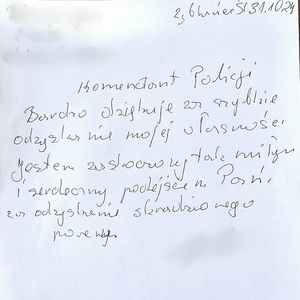 31.10.24
Komendant Policji
Bardzo dziękuje za szybkie
odzyskanie mojej własności.
Jestem zaskoczony tak miłym
i serdecznym podejściem Pań.
za odzyskanie skradzionego
roweru